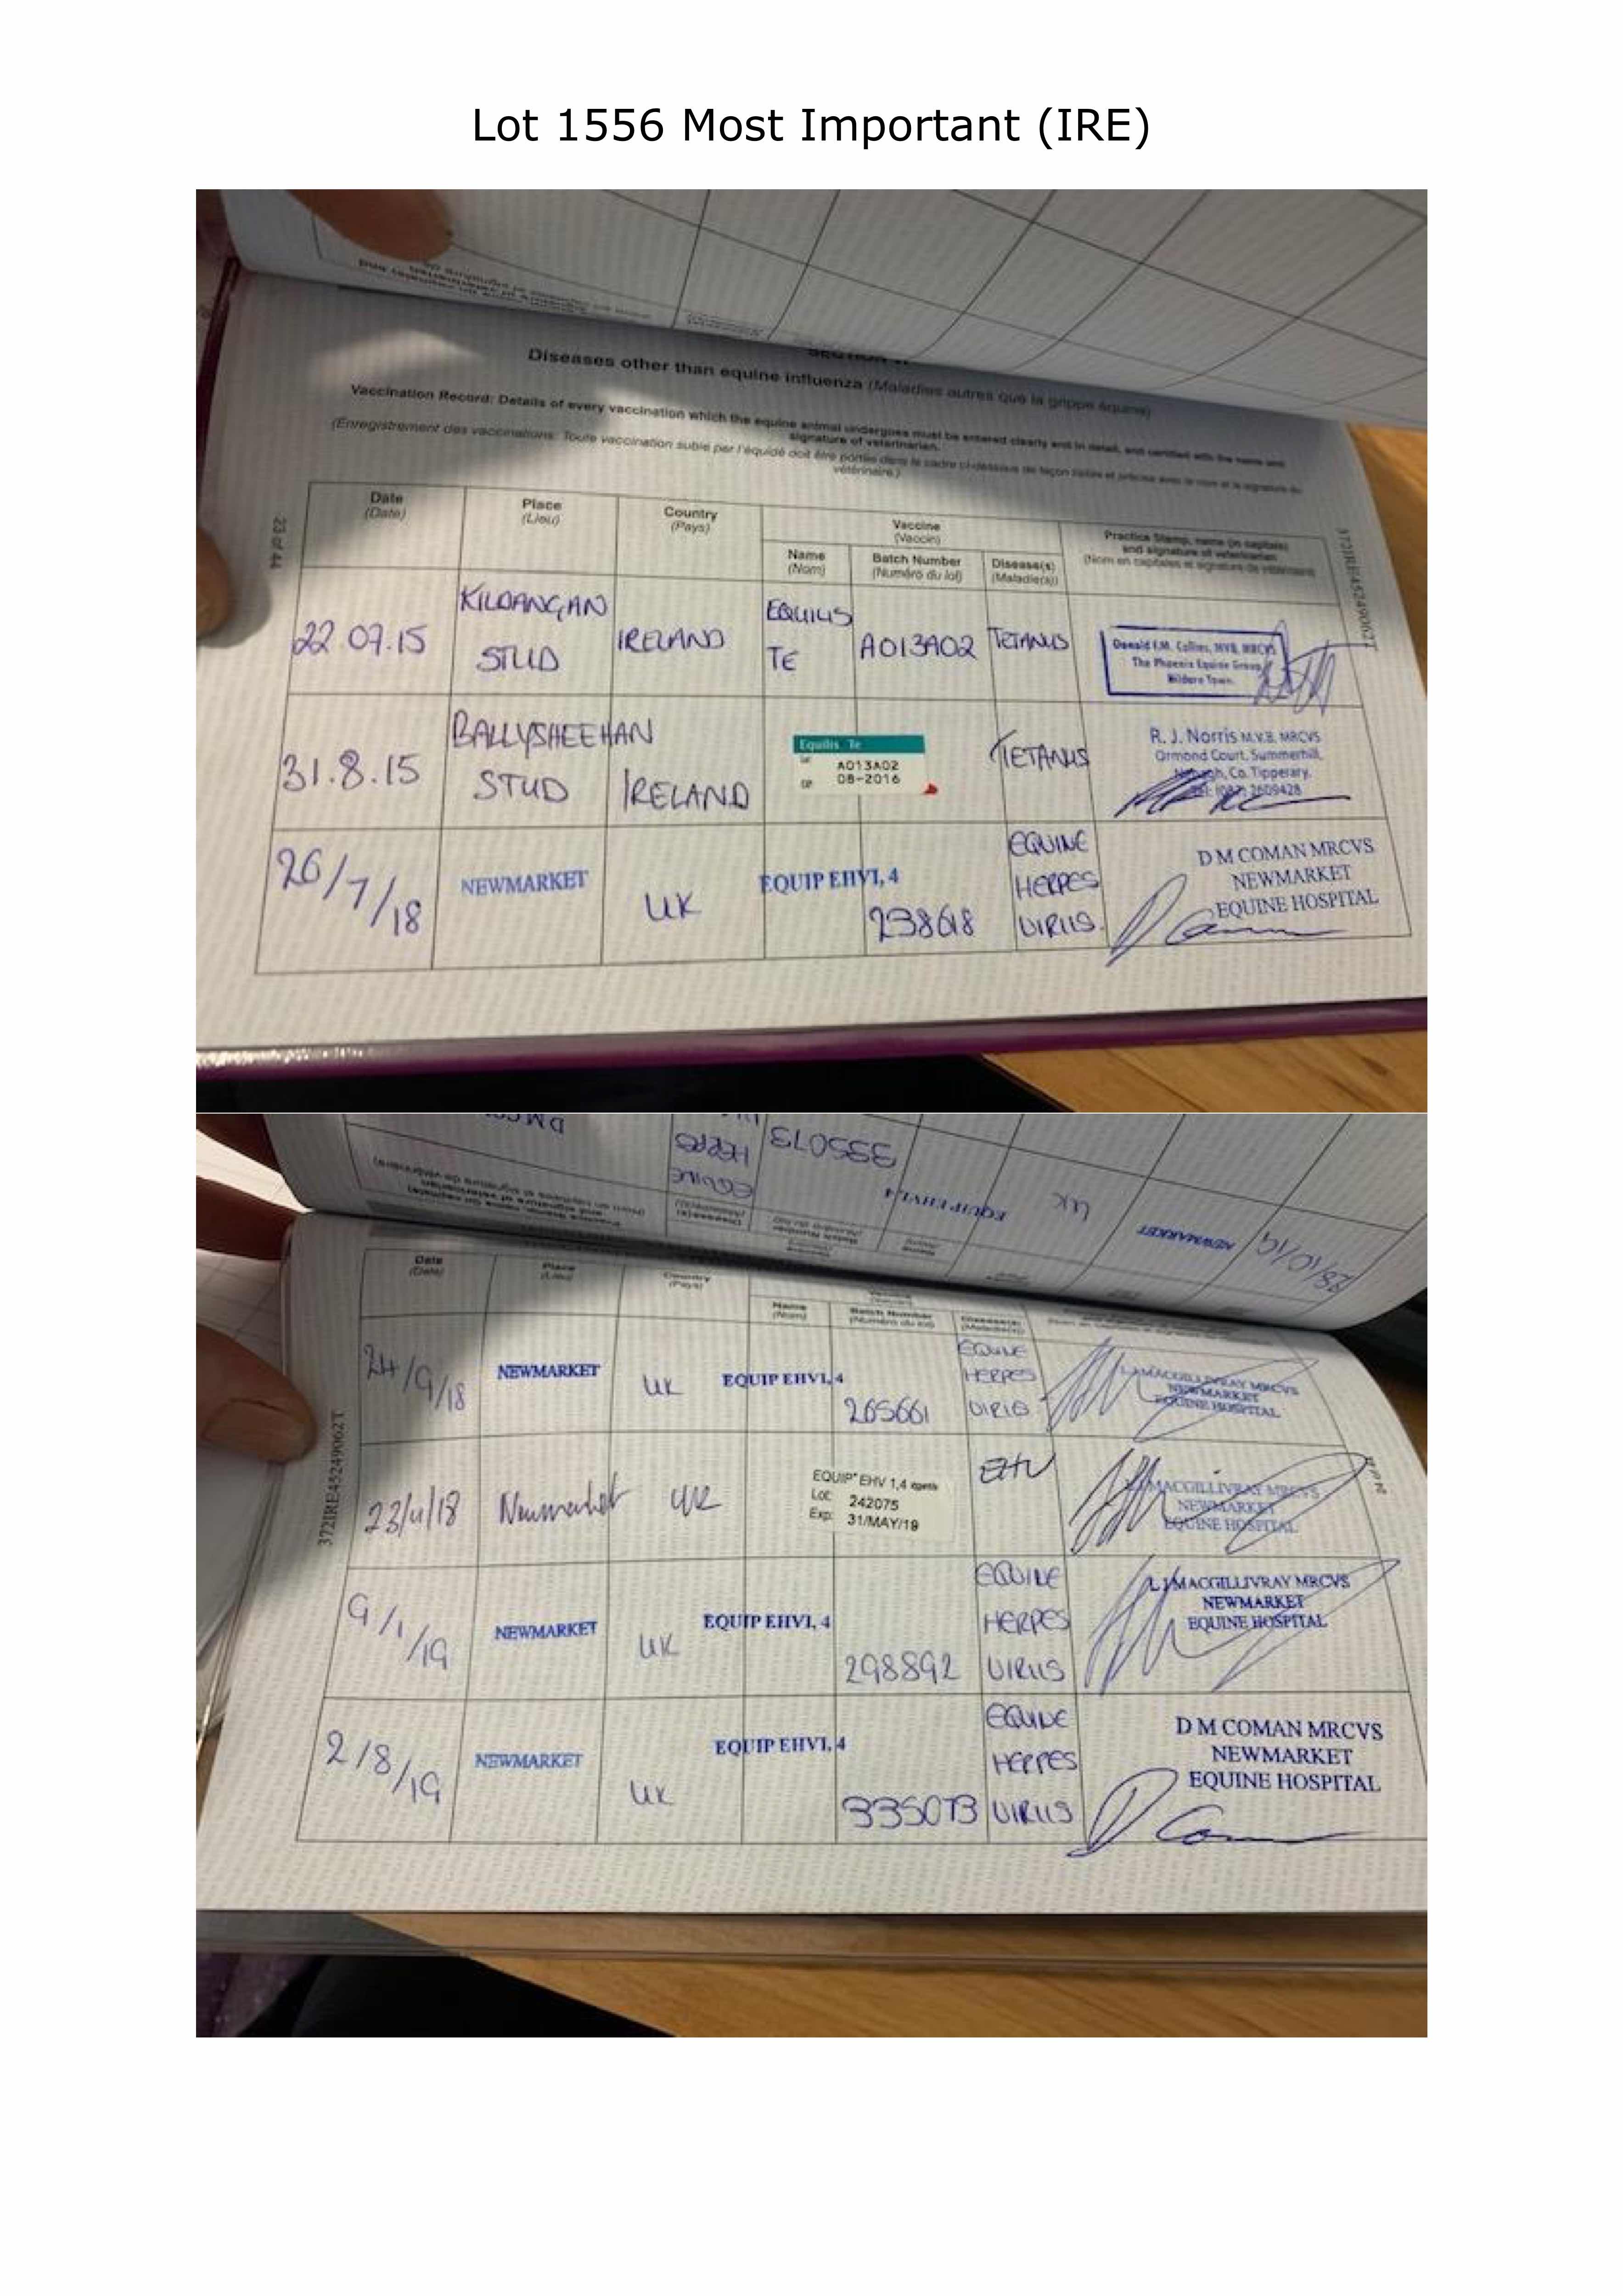 Lot 1556 Most Important (IRE)
Diseases other than equine influenza (Maladies autres que la grippe équine)
Vaccination Record: Details of every vaccination which the equine animal undergoes must be entered clearly and in detail, and certified with the name and
signature of veterinarian.
(Enregistrement des vaccinations: Toute vaccination subie par l'équidé doit être portée dans le cadre ci-dessous de façon lisible et précise avec le nom et la signature du
vétérinaire.)
23 of 44
372IRE45249062T
Date Place Country Vaccine Practice Stamp, name (in capitals)
(Date) (Lieu) (Pays) (Vaccin) and signature of veterinarian
Name Batch Number Disease(s) (Nom en capitales et signature de vétérinaire)
(Nom) (Numéro du lot) (Maladie(s))
22.07.15 KILDANGAN STUD IRELAND EQUILIS TE A013A02 TETANUS
Donald F.M. Collins, MVB, MRCVS
The Phoenix Equine Group
Kildare Town.
31.8.15 BALLYSHEEHAN STUD IRELAND
Equilis Te
A013A02
08-2016
TETANUS
R. J. Norris M.V.B. MRCVS
Ormond Court, Summerhill,
Co. Tipperary.
2609428
26/7/18 NEWMARKET UK EQUIP EHV1, 4 238618 EQUINE HERPES VIRUS
D M COMAN MRCVS
NEWMARKET
EQUINE HOSPITAL
28/10/19 NEWMARKET UK EQUIP EHV1, 4 335073 EQUINE HERPES
Date Place Country
(Date) (Lieu) (Pays)
Name Batch Number Disease(s)
(Nom) (Numéro du lot) (Maladie(s))
372IRE45249062T
24/9/18 NEWMARKET UK EQUIP EHV1, 4 265661 EQUINE HERPES VIRUS
L J MACGILLIVRAY MRCVS
NEWMARKET
EQUINE HOSPITAL
23/11/18 Newmarket UK
EQUIP EHV 1,4
Lot: 242075
Exp: 31/MAY/19
EHV
L J MACGILLIVRAY MRCVS
NEWMARKET
EQUINE HOSPITAL
9/1/19 NEWMARKET UK EQUIP EHV1, 4 298892 EQUINE HERPES VIRUS
L J MACGILLIVRAY MRCVS
NEWMARKET
EQUINE HOSPITAL
2/8/19 NEWMARKET UK EQUIP EHV1, 4 335073 EQUINE HERPES VIRUS
D M COMAN MRCVS
NEWMARKET
EQUINE HOSPITAL